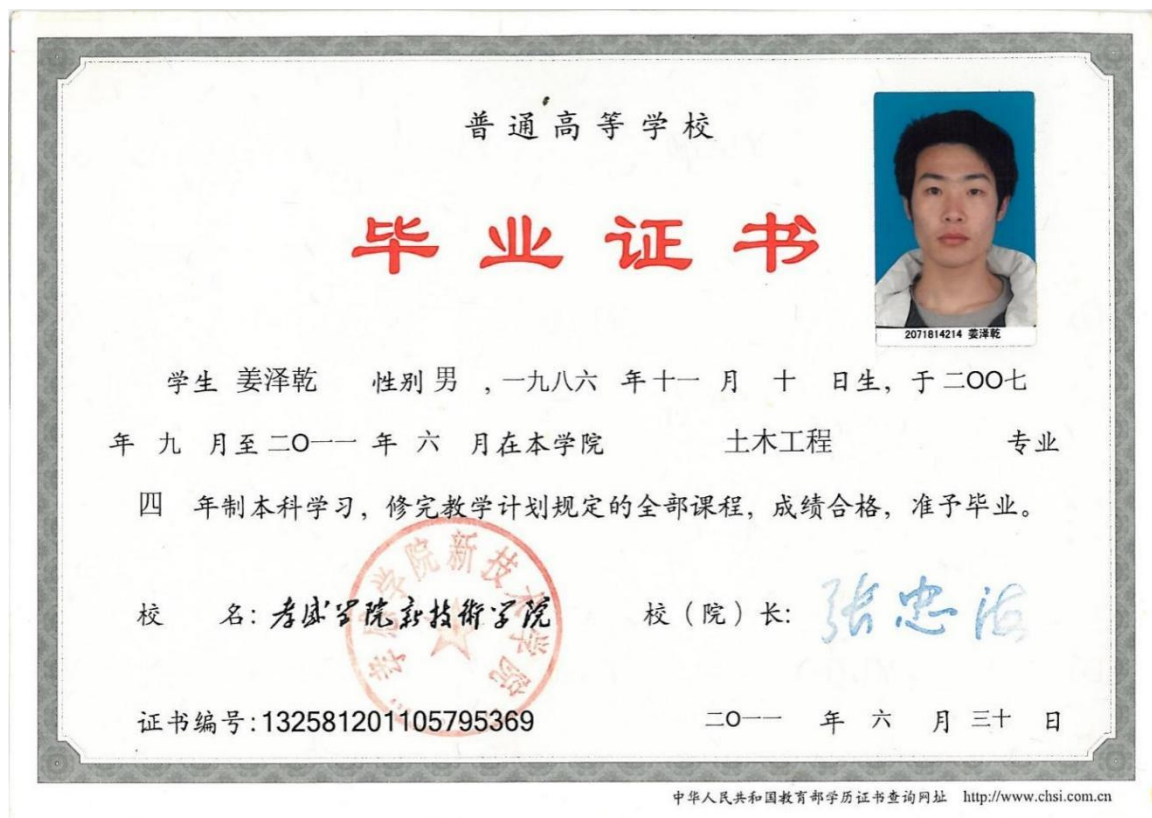 普通高等学校
毕业证书
2071814214 姜泽乾
学生 姜泽乾 性别 男 ,一九八六 年十一 月 十 日生, 于 二OO七
年 九 月至 二O一一 年 六 月在本学院 土木工程 专业
四 年制本科学习, 修完教学计划规定的全部课程, 成绩合格, 准予毕业。
孝感学院新技术学院
校 名: 孝感学院新技術学院 校（院）长: 张忠海
证书编号:132581201105795369 二O一一 年 六 月 三十 日
中华人民共和国教育部学历证书查询网址 http://www.chsi.com.cn